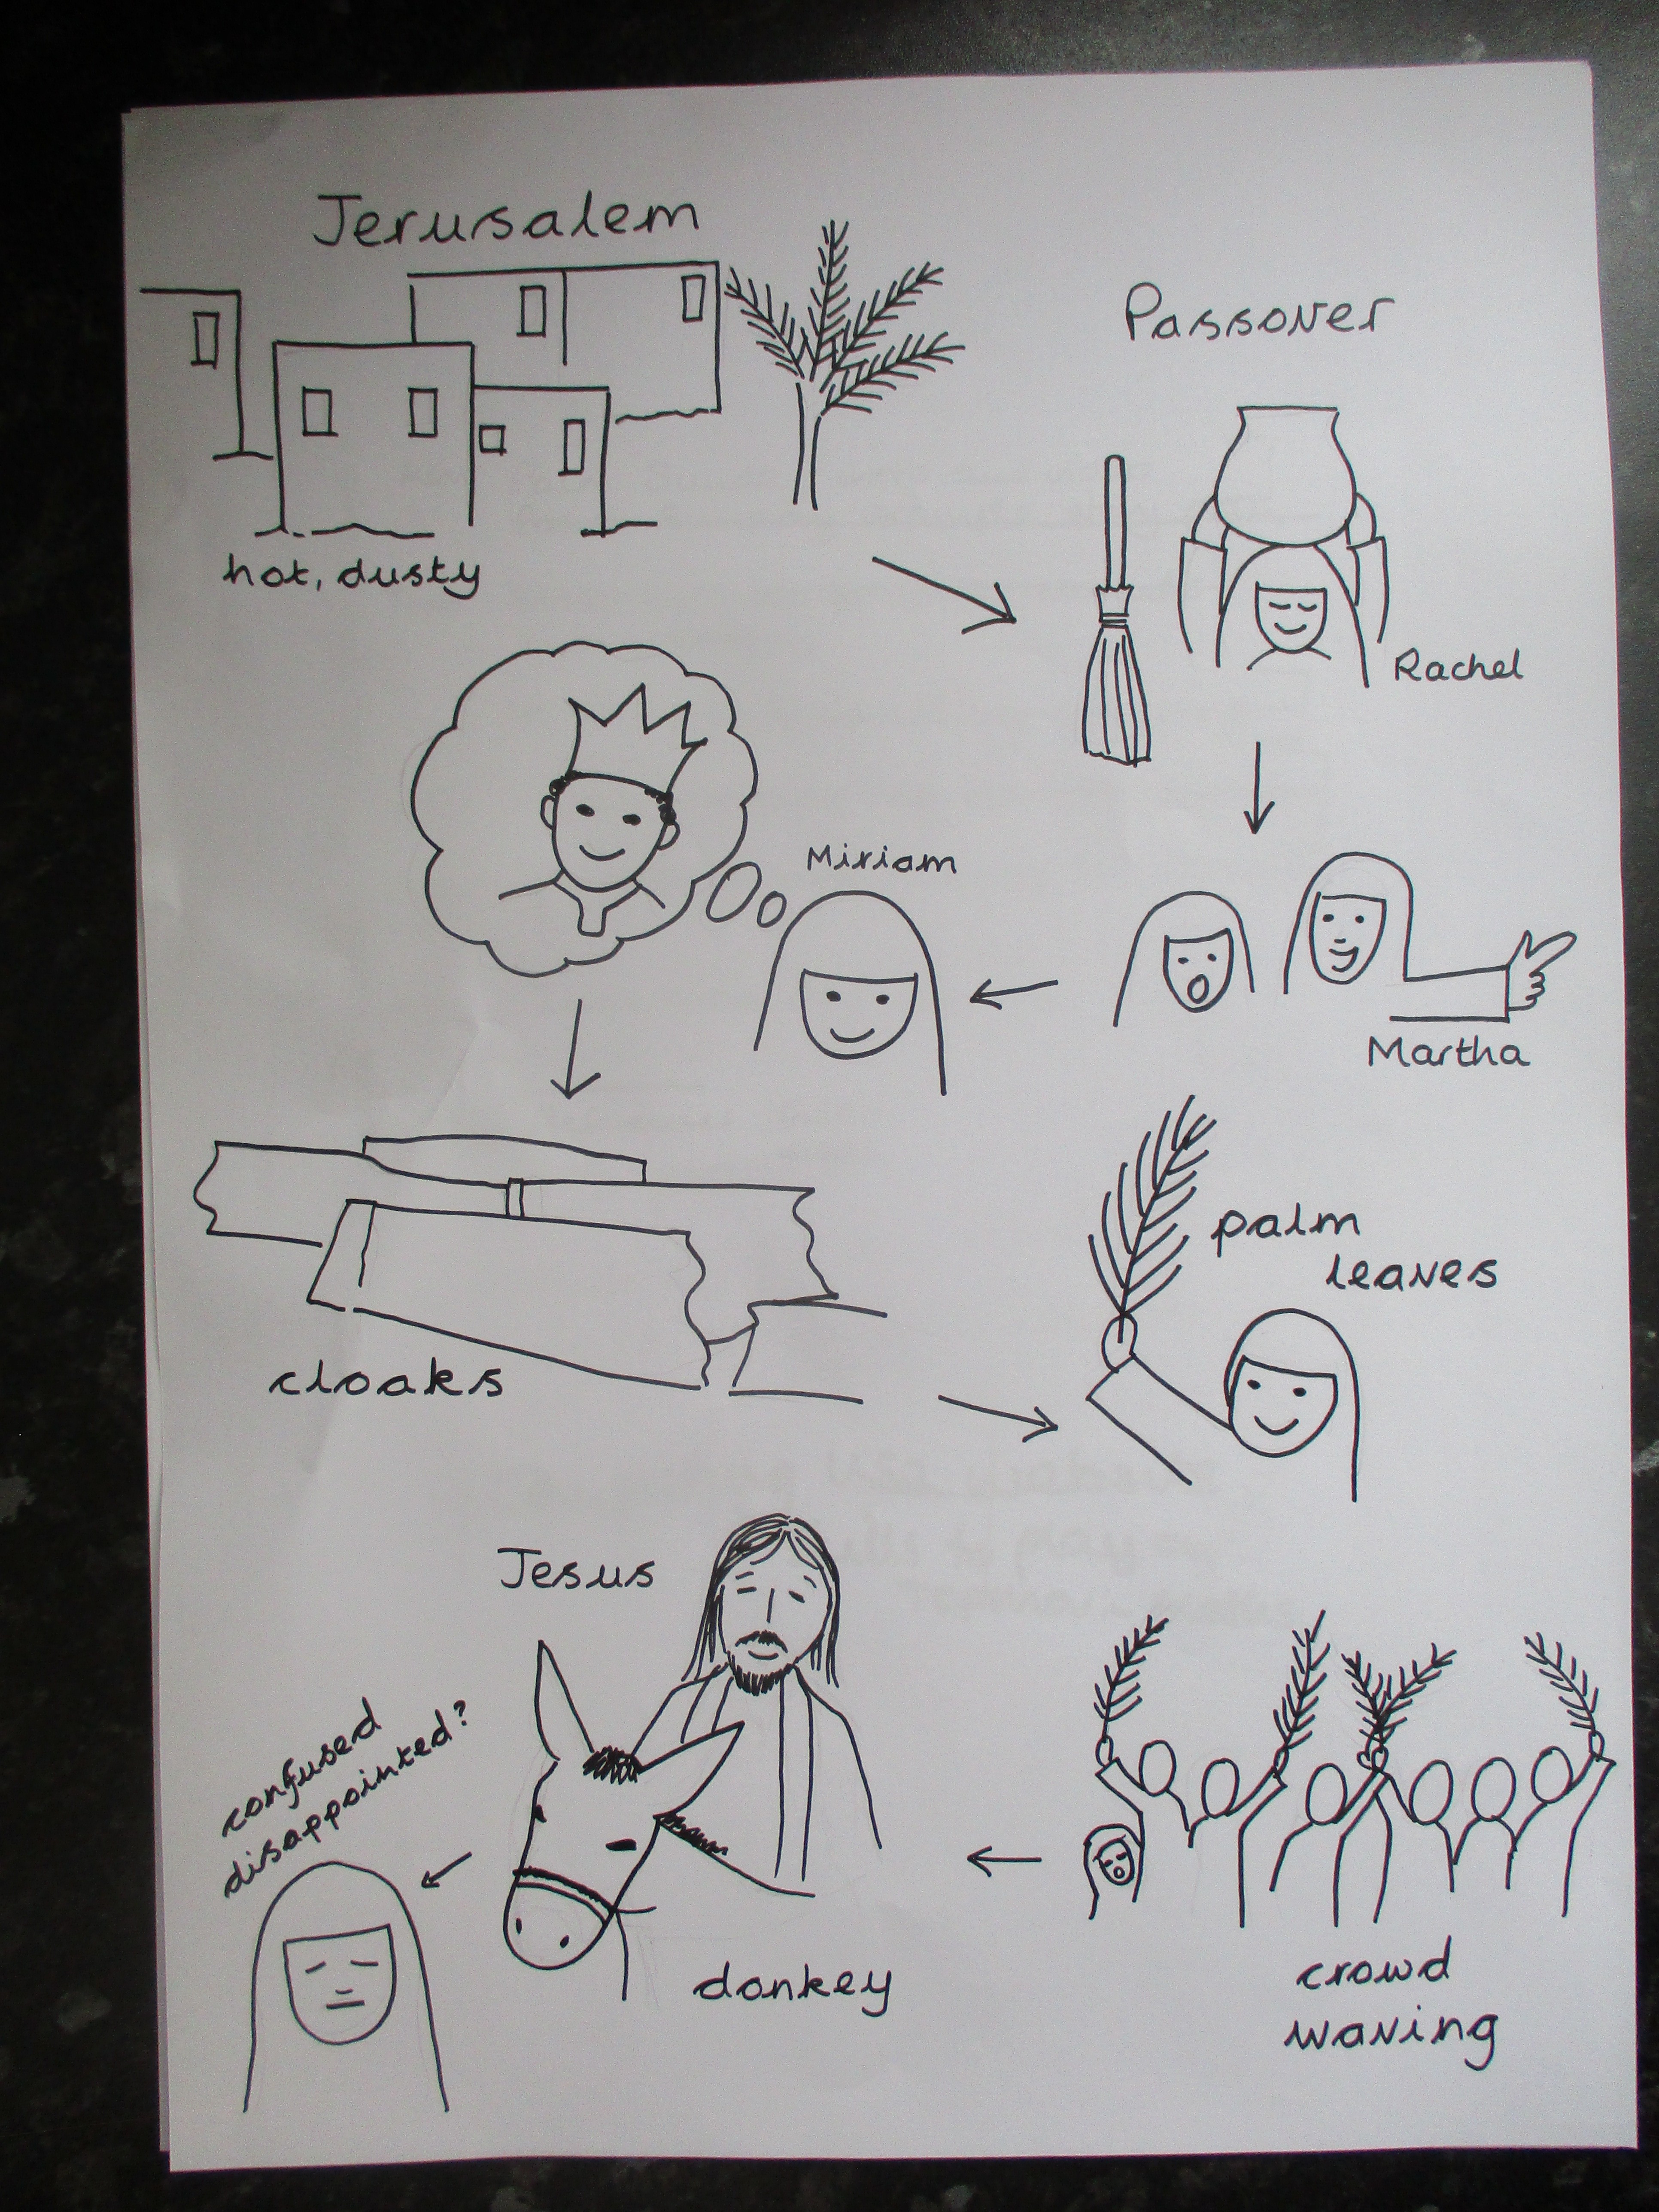 Jerusalem
hot, dusty
Passover
Rachel
Martha
Miriam
cloaks
palm
leaves
crowd
waving
Jesus
donkey
confused
disappointed?